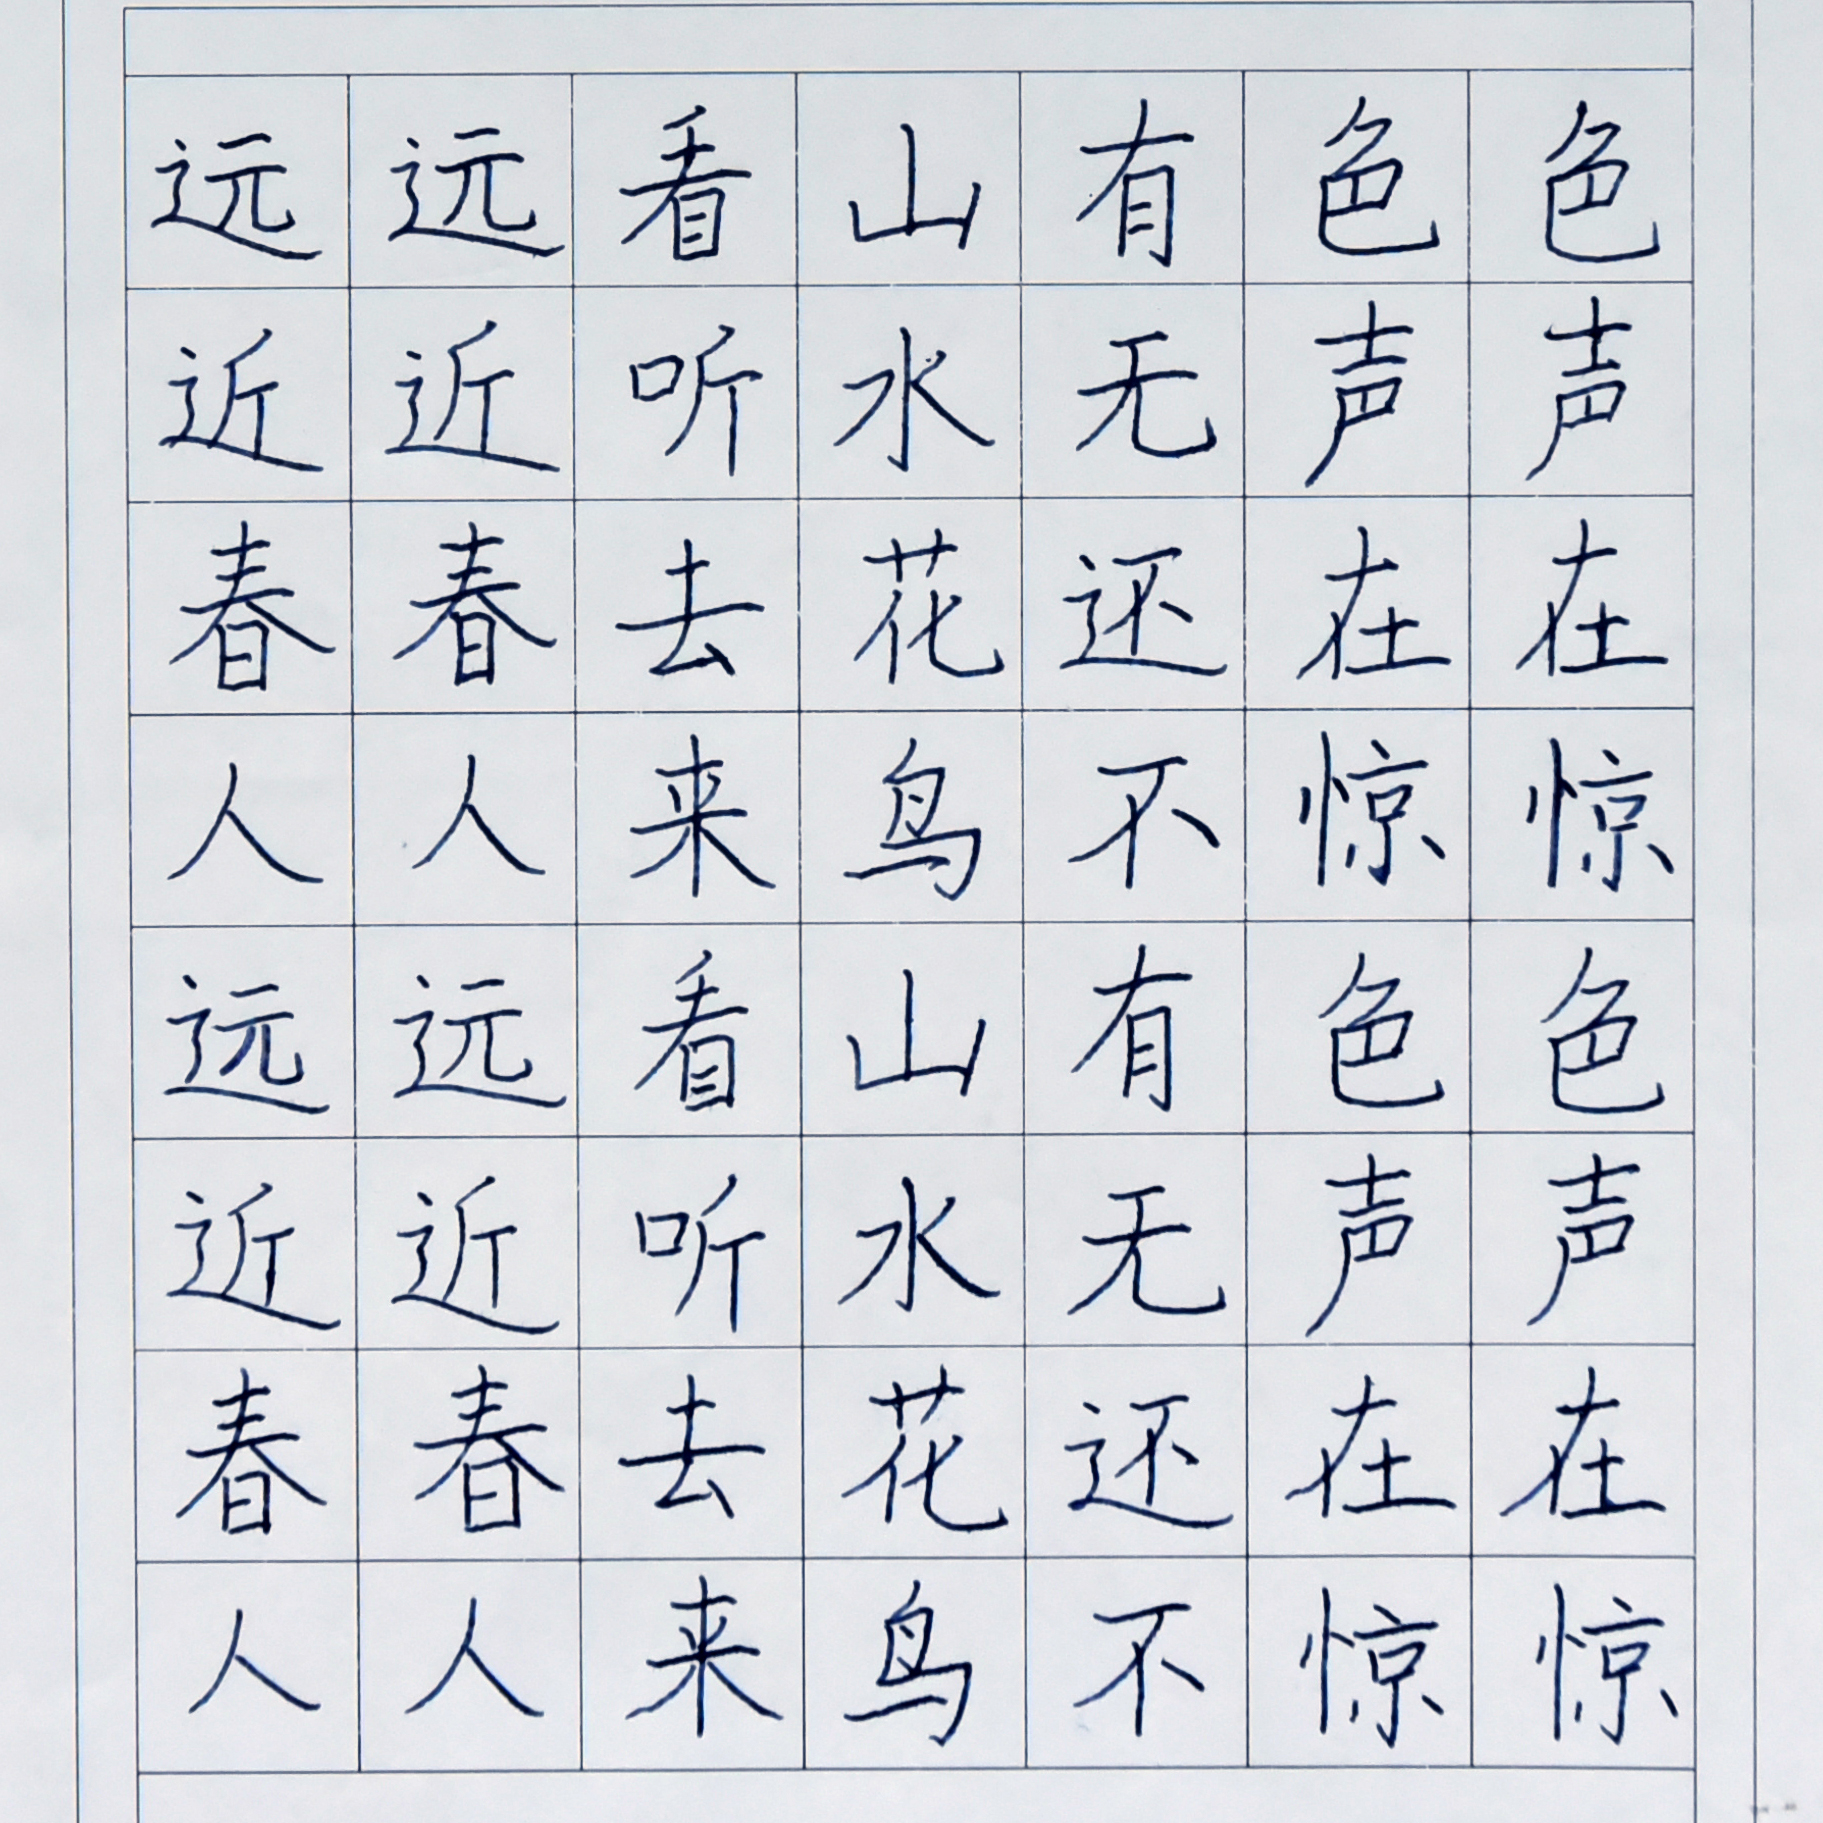 远远看山有色色
近近听水无声声
春春去花还在在
人人来鸟不惊惊
远远看山有色色
近近听水无声声
春春去花还在在
人人来鸟不惊惊